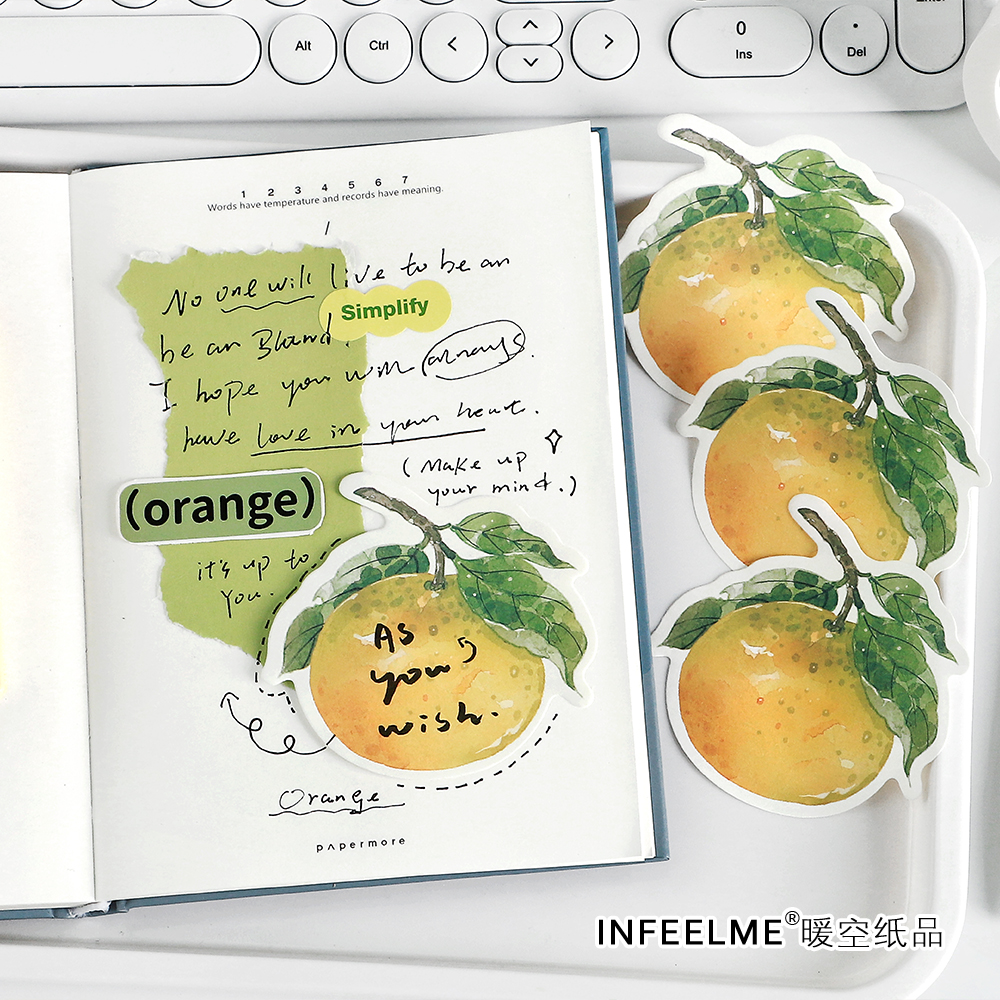 Alt
Ctrl
<
>
0
Ins
.
Del
1 2 3 4 5 6 7
Words have temperature and records have meaning.
No one will live to be an
Simplify
be an Island.
I hope you will always.
have love in your heart.
(Make up
your mind.)
(orange)
it's up to
you.
As
you
wish.
Orange
papermore
INFEELME®暖空纸品